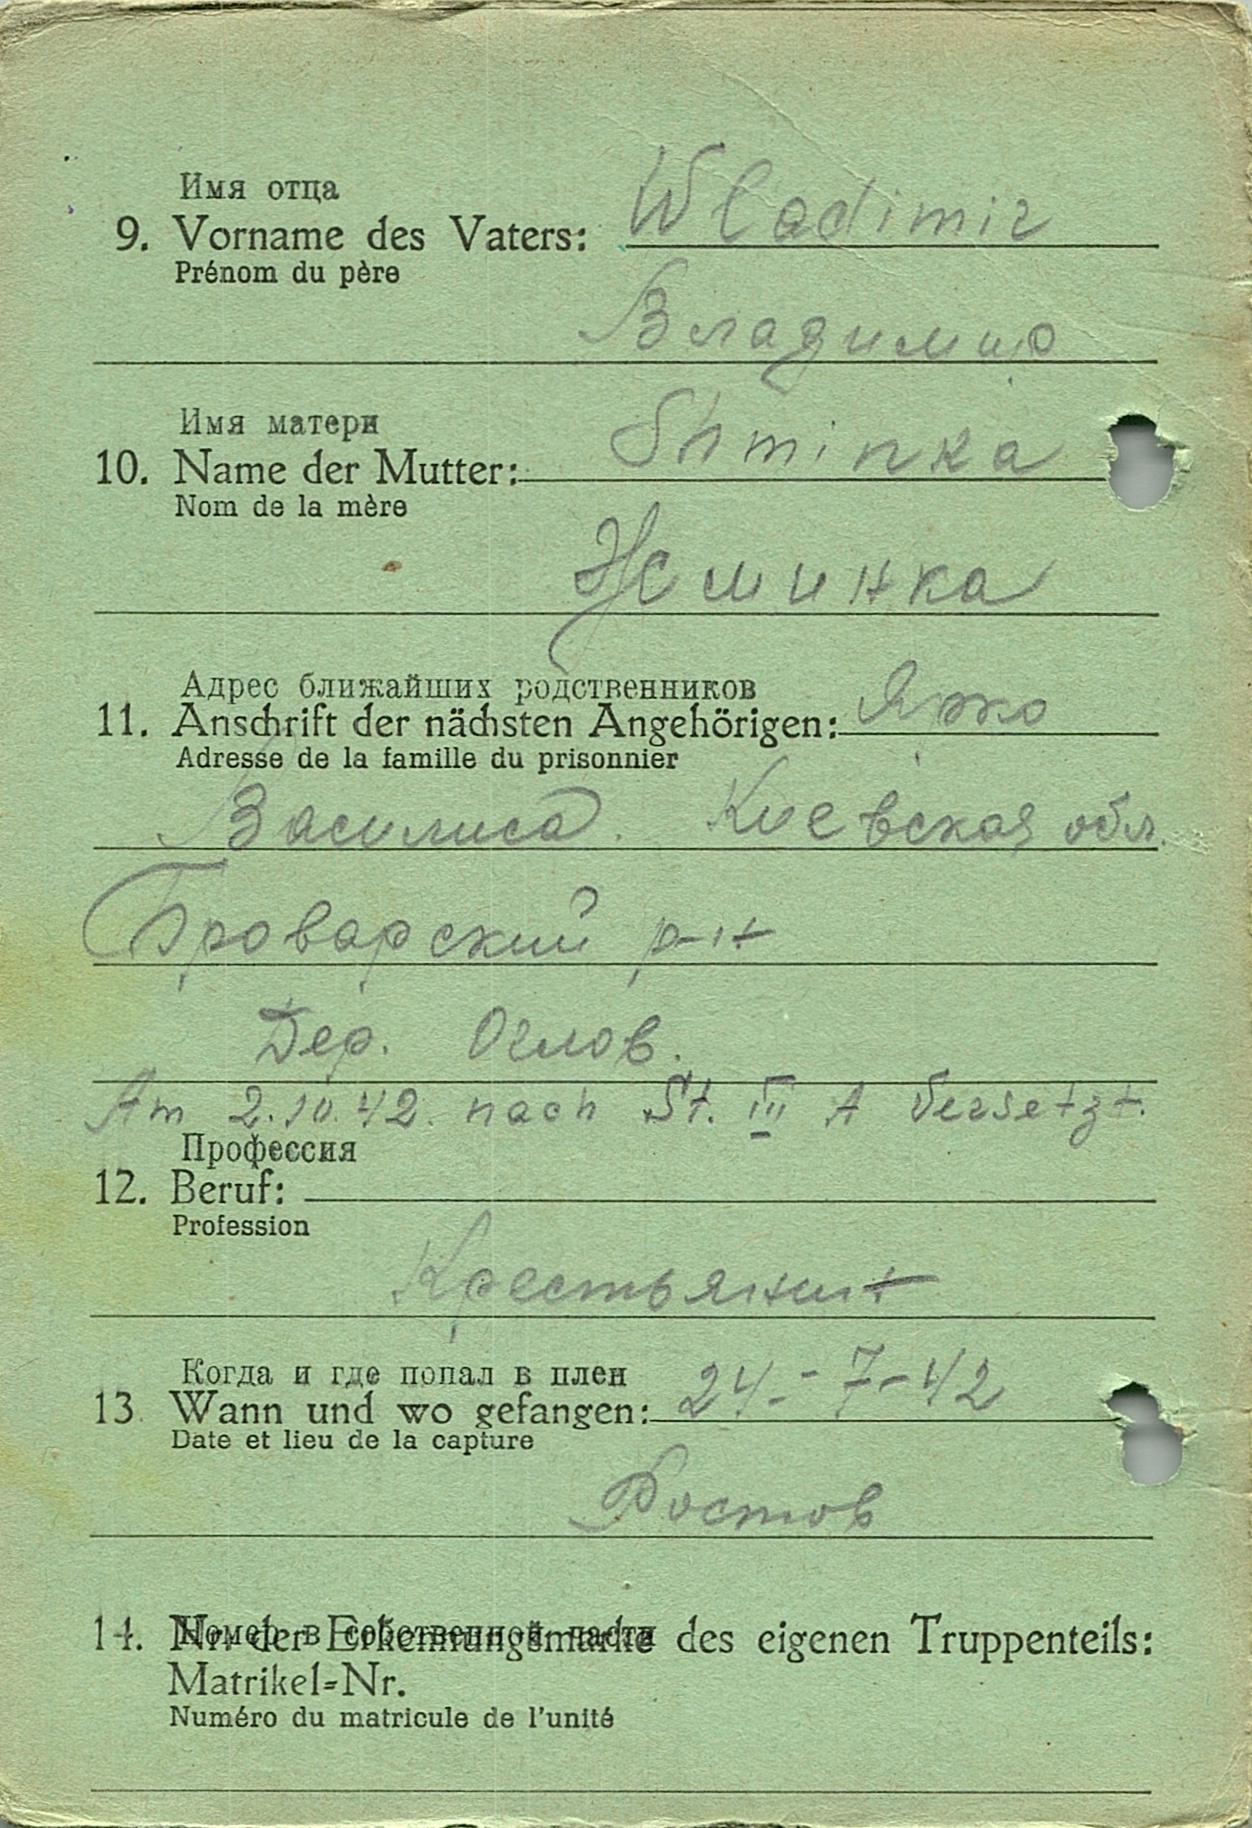 Имя отца
9. Vorname des Vaters: Wladimir
Prénom du père
Владимир
Имя матери
10. Name der Mutter: Shminka
Nom de la mère
Жминка
Адрес ближайших родственников
11. Anschrift der nächsten Angehörigen:
Adresse de la famille du prisonnier
Василиса. Киевская обл.
Броварский р-н
Дер. Оглов.
Am 2.10.42. nach St. III A versetzt.
Профессия
12. Beruf:
Profession
Крестьянин
Когда и где попал в плен
13. Wann und wo gefangen: 24-7-42
Date et lieu de la capture
Ростов
Номер в собственной части
14. Nr. der Erkennungsmarke des eigenen Truppenteils:
Matrikel-Nr.
Numéro du matricule de l'unité